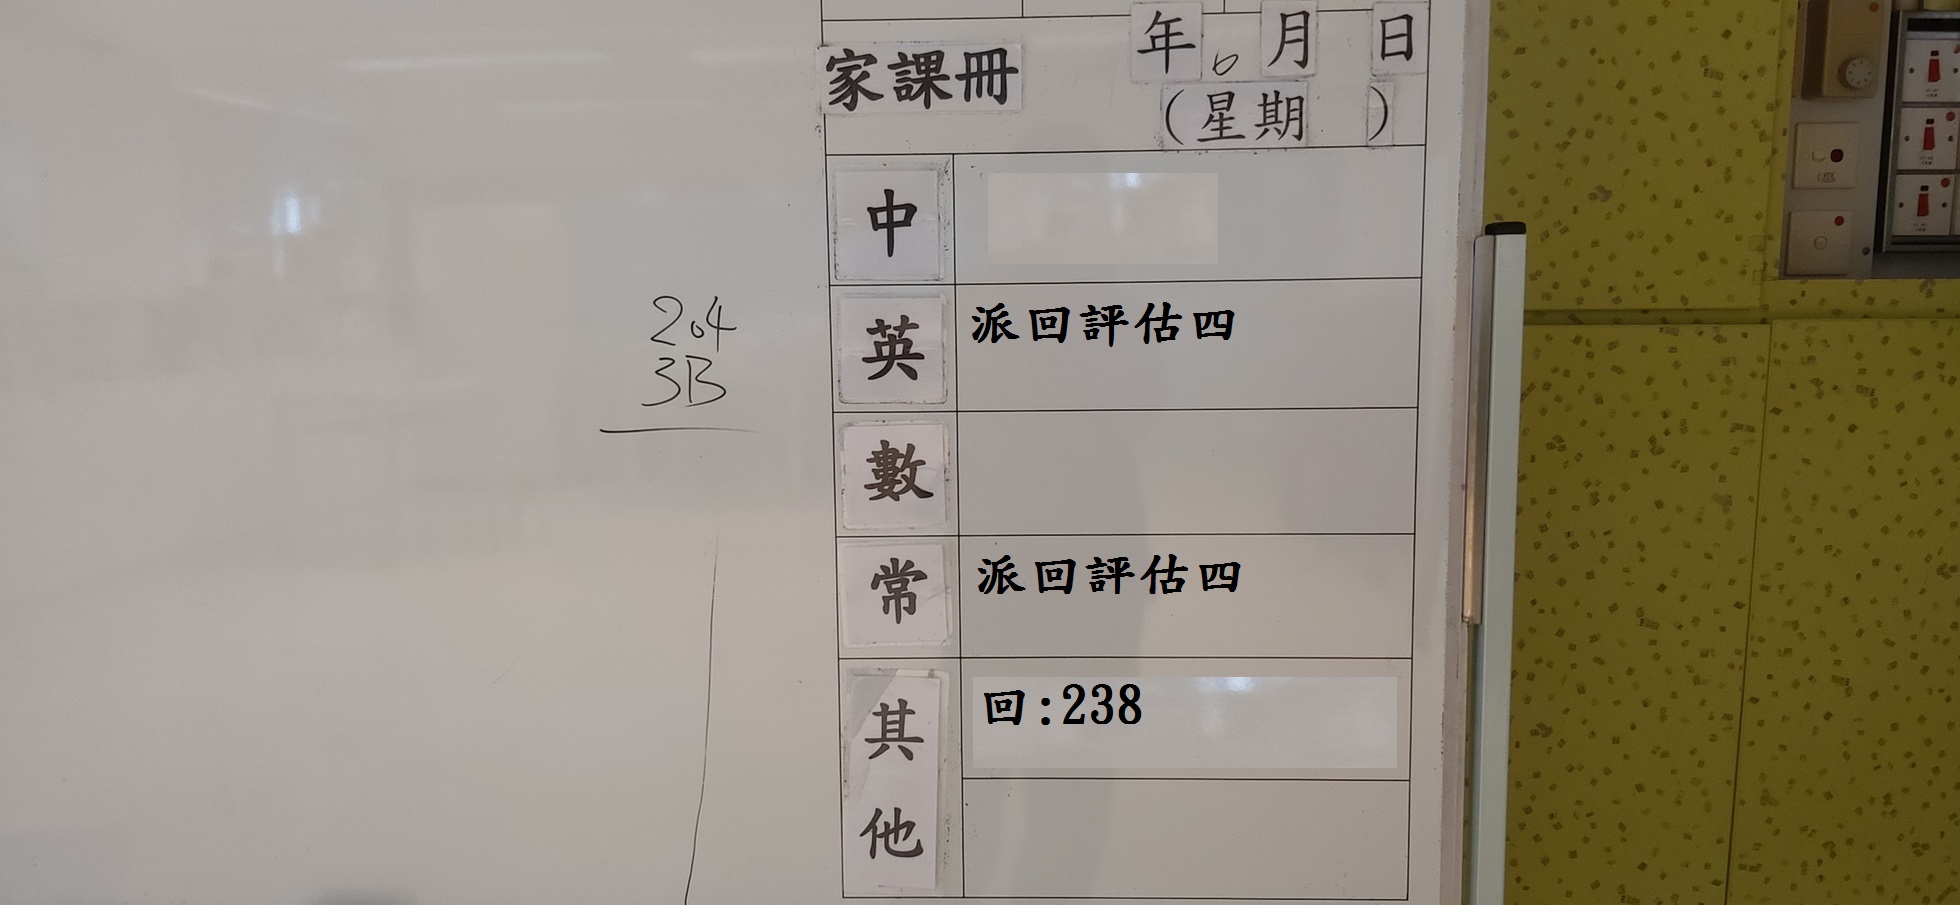 204
3B
家課冊
年6月 日
(星期 )
中
英 派回評估四
數
常 派回評估四
其他 回:238